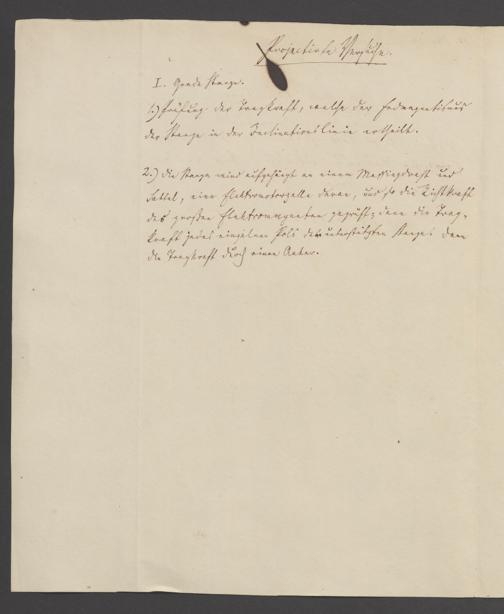 Projectirte Versuche.
I. Grade Stange.
1.) Prüfung der Tragkraft, welche der Erdmagnetismus
der Stange in der Inclinationslinie ertheilt.
2.) Die Stange wird aufgehängt an einem Messingdraht und
Sattel, eine Elektromotorzelle daran, und so die Richtkraft
des großen Elektromagneten geprüft; dann die Trag-
kraft jedes einzelnen Pols der unterstützten Stange; dann
die Tragkraft durch einen Anker.